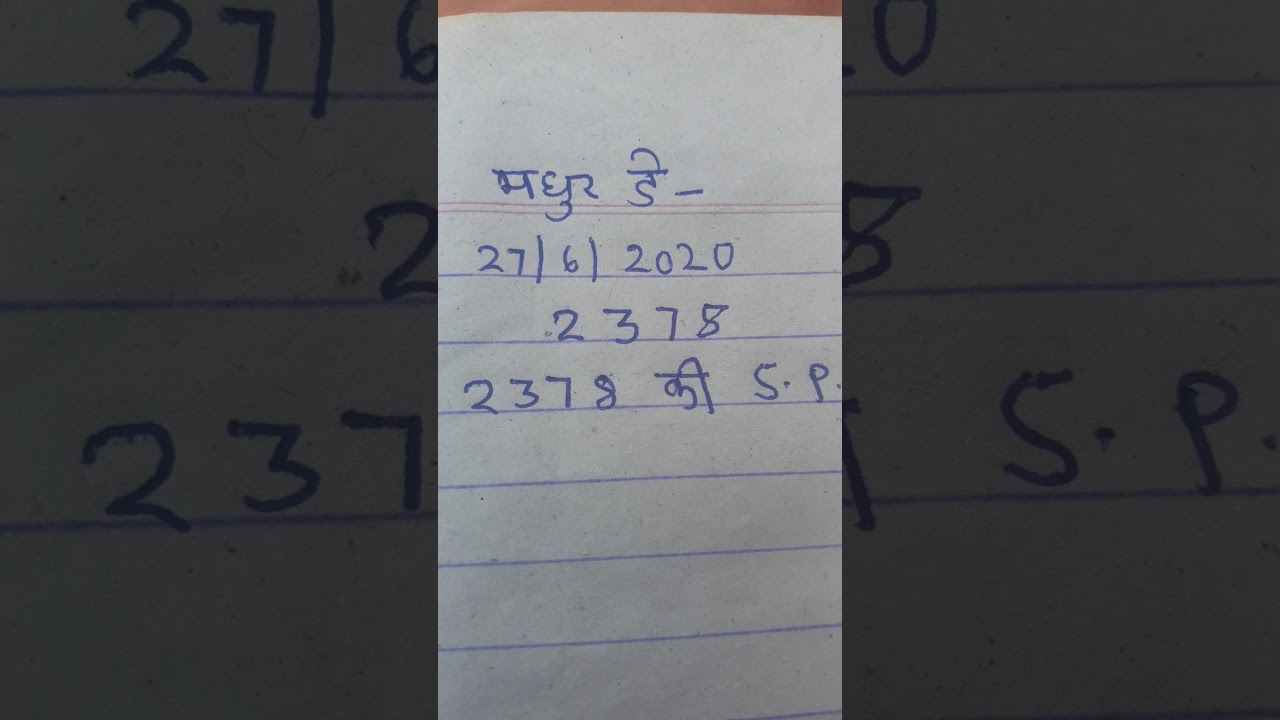 मधुर डे -
27/6/2020
2378
2378 की S.P.